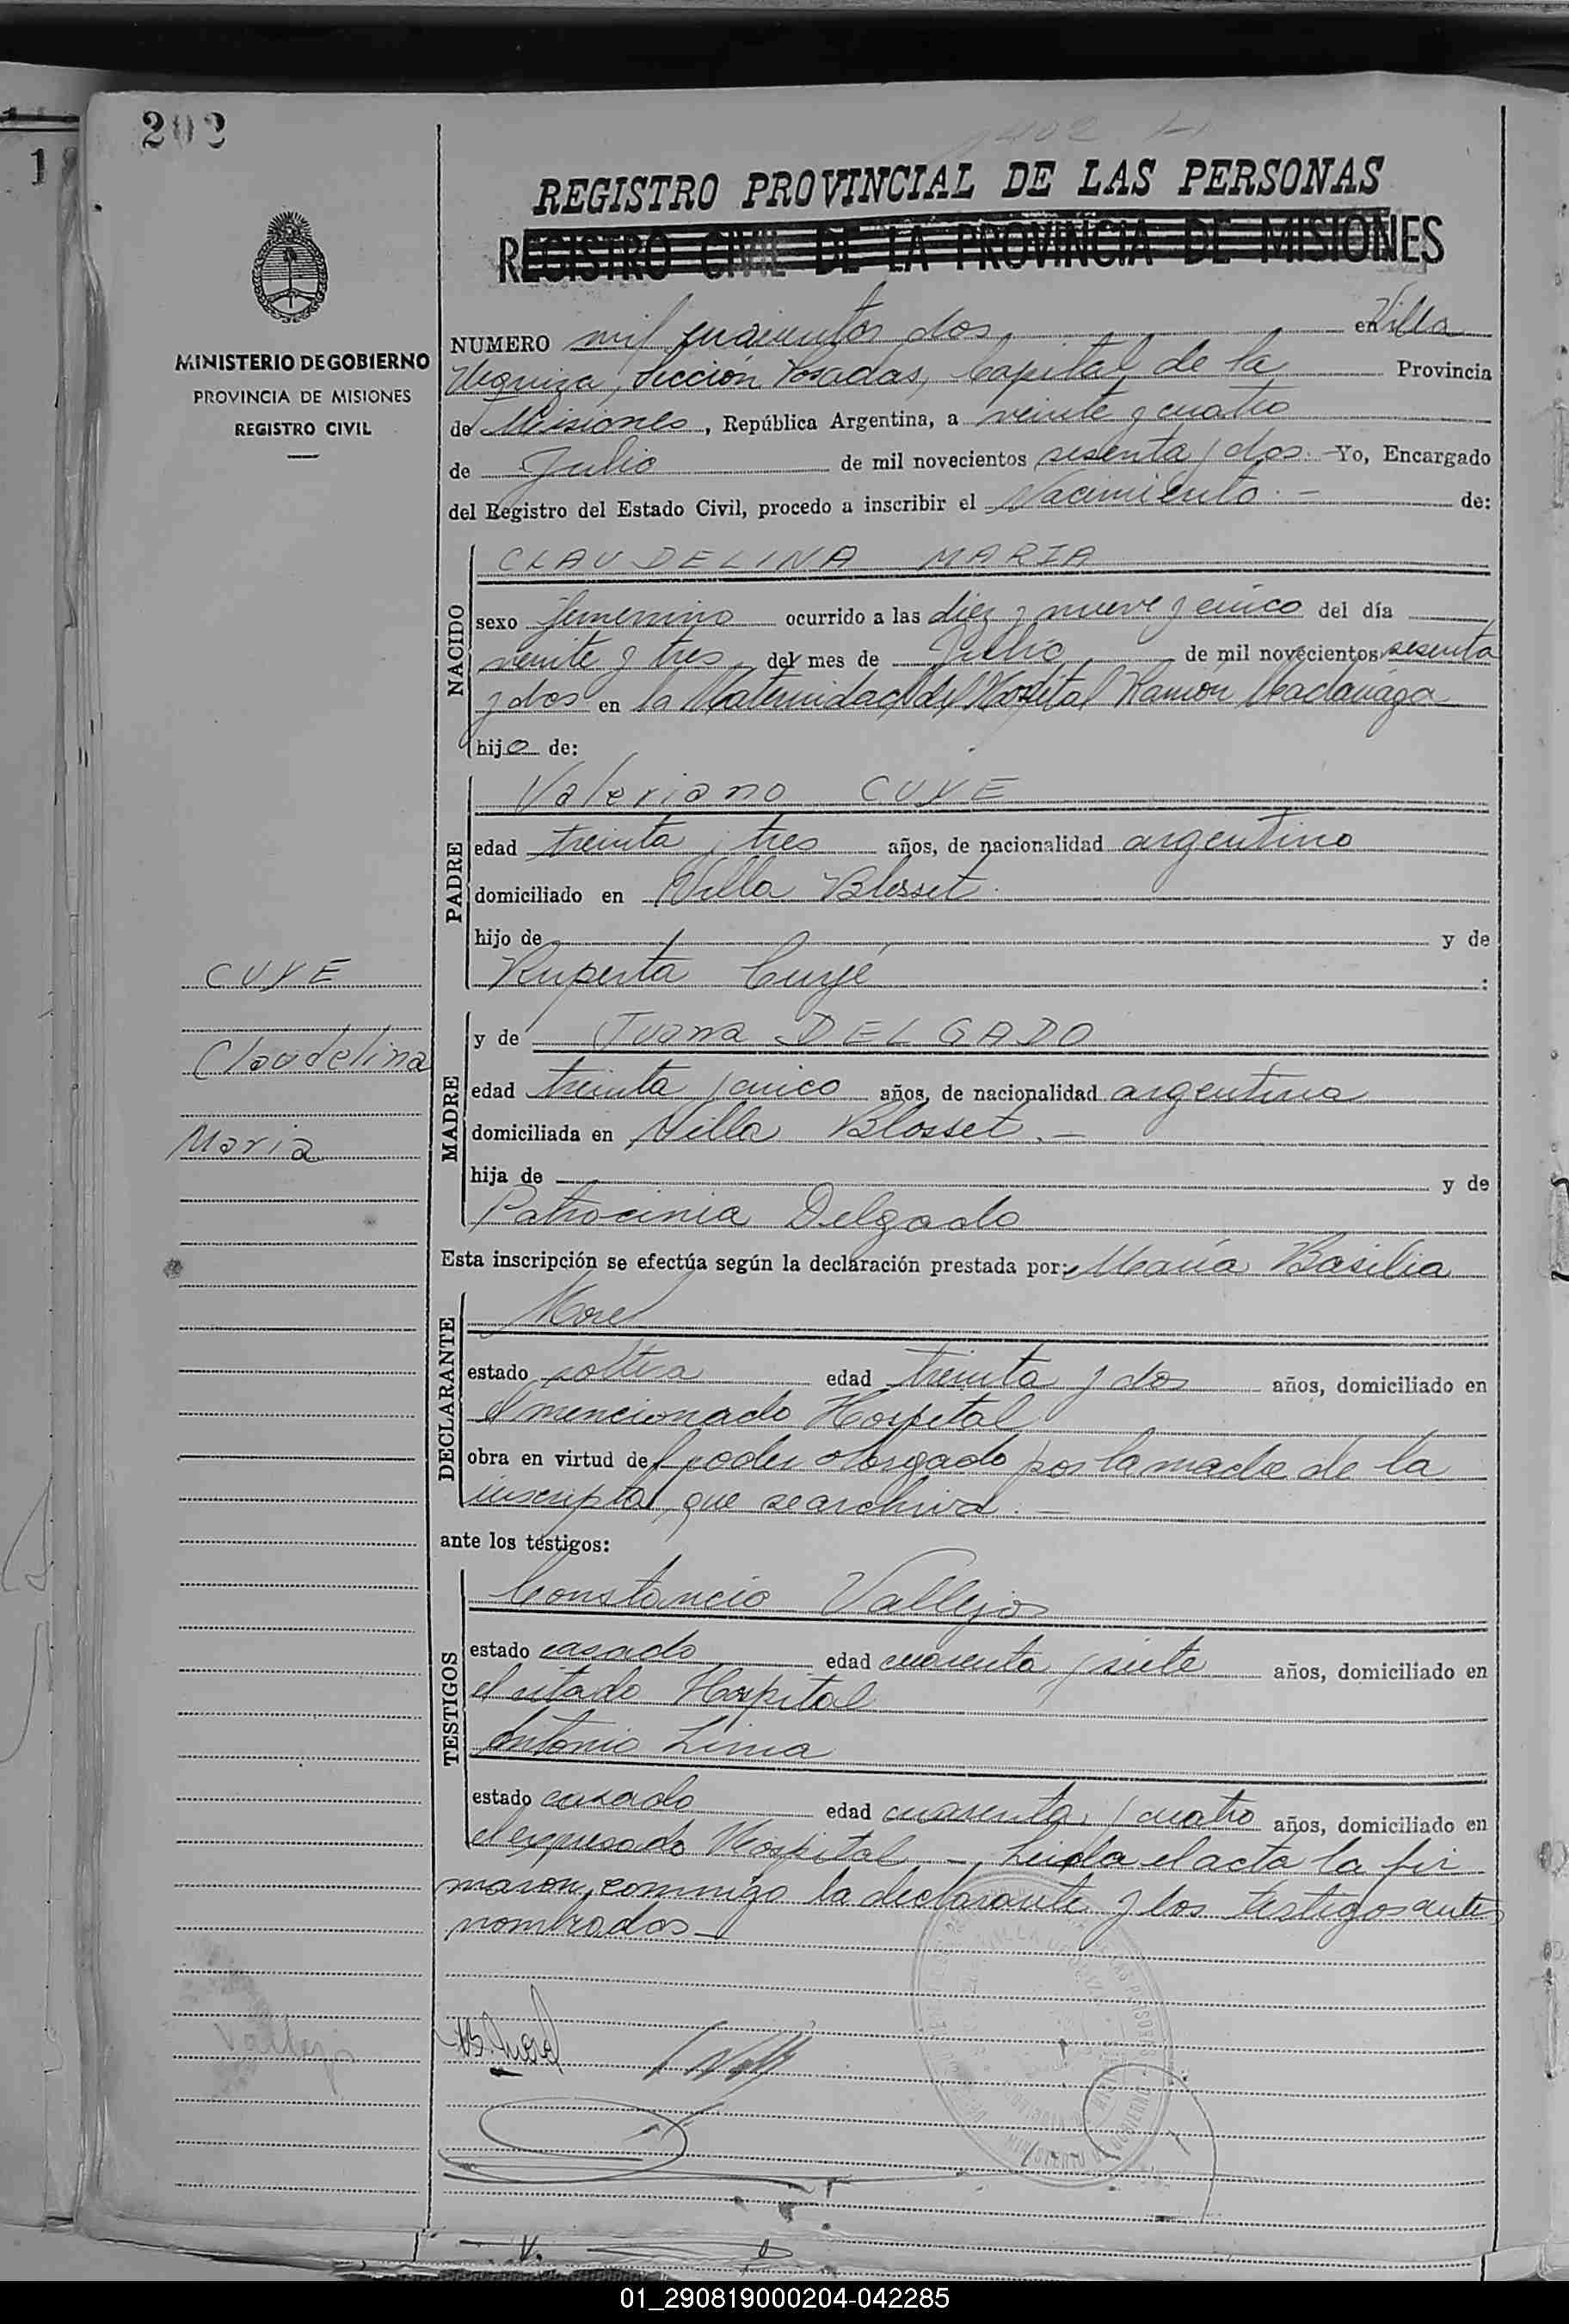 202
REGISTRO PROVINCIAL DE LAS PERSONAS
REGISTRO CIVIL DE LA PROVINCIA DE MISIONES
MINISTERIO DE GOBIERNO
PROVINCIA DE MISIONES
REGISTRO CIVIL
NUMERO mil cuatrocientos dos en Villa
Urquiza, Sección Posadas, Capital de la Provincia
de Misiones, República Argentina, a veinte y cuatro
de Julio de mil novecientos sesenta y dos. Yo, Encargado
del Registro del Estado Civil, procedo a inscribir el Nacimiento.- de:
NACIDO
CLAUDELINA MARIA
sexo femenino ocurrido a las diez y nueve y cinco del día
veinte y tres del mes de Julio de mil novecientos sesenta
y dos en la Maternidad del Hospital Ramón Madariaga
hijo de:
PADRE
Valeriano CUYE
edad treinta y tres años, de nacionalidad argentino
domiciliado en Villa Blosset.
hijo de y de
Ruperta Cuyé :
CUYE
Claudelina
Maria
MADRE
y de Juana DELGADO
edad treinta y cinco años, de nacionalidad argentina
domiciliada en Villa Blosset.-
hija de y de
Patrocinia Delgado
Esta inscripción se efectúa según la declaración prestada por: María Basilia
DECLARANTE
Morel
estado soltera edad treinta y dos años, domiciliado en
el mencionado Hospital
obra en virtud del poder otorgado por la madre de la
inscripta, que se archiva.-
ante los testigos:
TESTIGOS
Constancio Vallejos
estado casado edad cuarenta y siete años, domiciliado en
el citado Hospital
Antonio Lima
estado casado edad cuarenta y cuatro años, domiciliado en
el expresado Hospital - Leida el acta la fir
maron, conmigo la declarante y los testigos antes
nombrados-
01_290819000204-042285